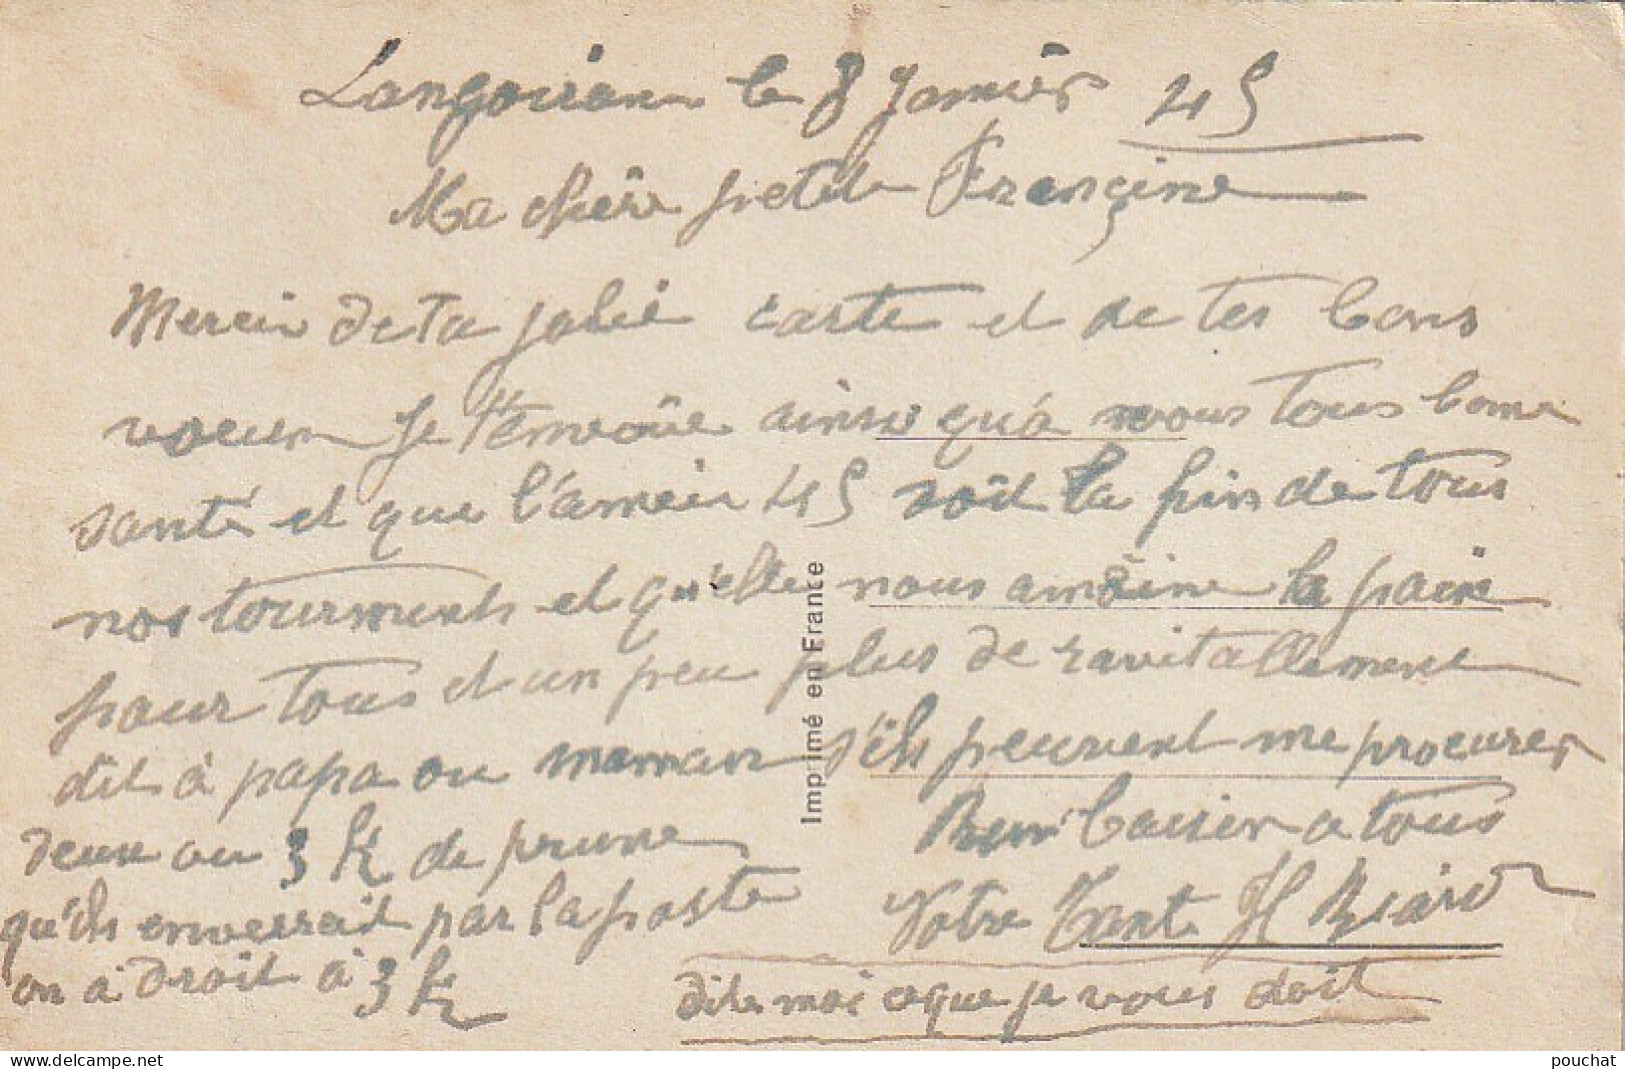 Langoiran le 8 Janvier 45
Ma chère petite Françine
Merci de ta jolie carte et de tes bons
voeux je t'envoîe ainsi qu'à vous tous bonne
santé et que l'année 45 soit la fin de tous
nos tourments et qu'elle nous amèine la paix
pour tous et un peu plus de ravitallement
dit à papa ou maman s'ils peuvent me procurer
deux ou 3 K de prune
qu'ils enverrait par la poste
on à droit à 3 K
Bons baiser a tous
Votre Tante H
dite moi ceque je vous doit
Imprimé en France
pouchat